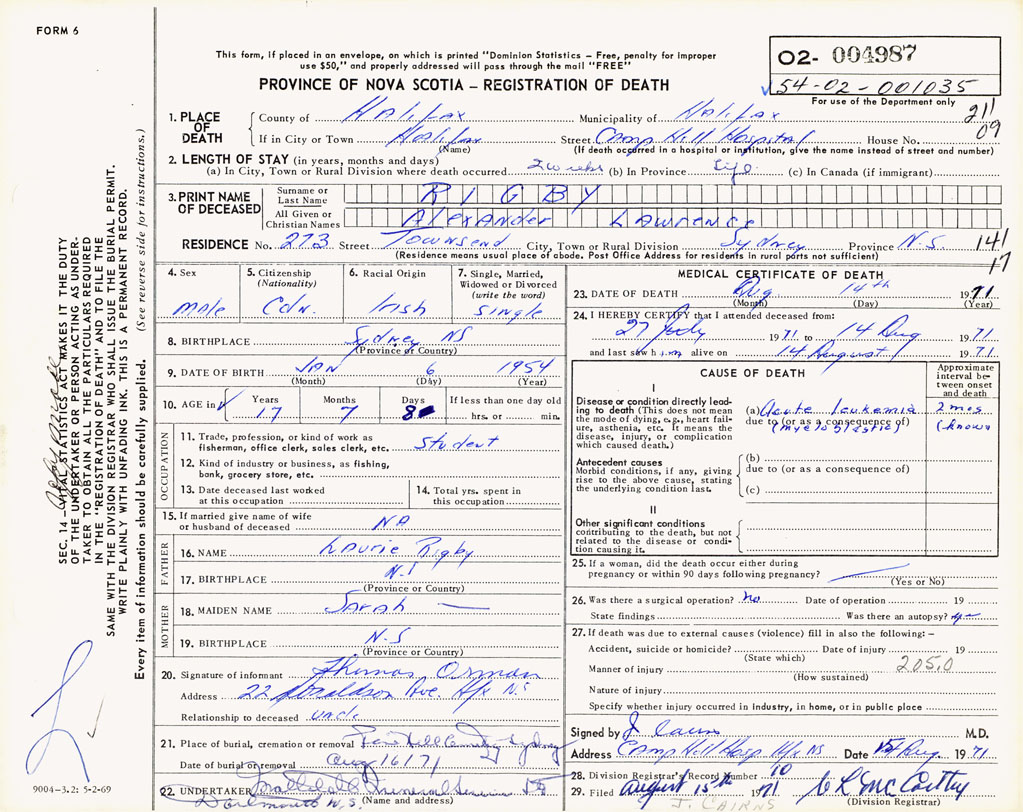 FORM 6
This form, if placed in an envelope, on which is printed "Dominion Statistics – Free, penalty for improper
use $50," and properly addressed will pass through the mail "FREE"
02- 004987
54-02-001035
For use of the Department only
PROVINCE OF NOVA SCOTIA – REGISTRATION OF DEATH
211
09
1. PLACE OF DEATH
County of Halifax Municipality of Halifax
If in City or Town Halifax Street Camp Hill Hospital House No.
(Name) (If death occurred in a hospital or institution, give the name instead of street and number)
2. LENGTH OF STAY (in years, months and days)
(a) In City, Town or Rural Division where death occurred 2 weeks (b) In Province Life (c) In Canada (if immigrant)
3. PRINT NAME OF DECEASED
Surname or Last Name RIGBY
All Given or Christian Names Alexander Lawrence
RESIDENCE No. 273 Street Townsend City, Town or Rural Division Sydney Province N.S.
141
17
(Residence means usual place of abode. Post Office Address for residents in rural parts not sufficient)
4. Sex
male
5. Citizenship (Nationality)
Cdn.
6. Racial Origin
Irish
7. Single, Married, Widowed or Divorced (write the word)
single
8. BIRTHPLACE Sydney NS
(Province or Country)
9. DATE OF BIRTH JAN 6 1954
(Month) (Day) (Year)
10. AGE in
Years Months Days If less than one day old
17 7 8 hrs. or min.
OCCUPATION
11. Trade, profession, or kind of work as
fisherman, office clerk, sales clerk, etc. Student
12. Kind of industry or business, as fishing,
bank, grocery store, etc.
13. Date deceased last worked
at this occupation
14. Total yrs. spent in
this occupation
15. If married give name of wife
or husband of deceased NA
FATHER
16. NAME Laurie Rigby
17. BIRTHPLACE N.S
(Province or Country)
MOTHER
18. MAIDEN NAME Sarah —
19. BIRTHPLACE N.S
(Province or Country)
20. Signature of informant Thomas Orman
Address 22 Donaldson Ave. Hfx NS
Relationship to deceased uncle
21. Place of burial, cremation or removal Cemetery Sydney
Date of burial or removal Aug 16/71
22. UNDERTAKER Funeral Service
Dartmouth N.S. (Name and address)
MEDICAL CERTIFICATE OF DEATH
23. DATE OF DEATH Aug 14th 1971
(Month) (Day) (Year)
24. I HEREBY CERTIFY that I attended deceased from:
27 July 1971 to 14 Aug 1971
and last saw him alive on 14 August 1971
CAUSE OF DEATH
Approximate interval between onset and death
I
Disease or condition directly leading to death (This does not mean the mode of dying, e.g., heart failure, asthenia, etc. It means the disease, injury, or complication which caused death.)
(a) Acute leukemia 2 mos
due to (or as a consequence of)
(myeloblastic) (known
Antecedent causes
Morbid conditions, if any, giving rise to the above cause, stating the underlying condition last.
(b)
due to (or as a consequence of)
(c)
II
Other significant conditions
contributing to the death, but not related to the disease or condition causing it.
25. If a woman, did the death occur either during
pregnancy or within 90 days following pregnancy?
(Yes or No)
26. Was there a surgical operation? No Date of operation 19
State findings Was there an autopsy?
27. If death was due to external causes (violence) fill in also the following: –
Accident, suicide or homicide? Date of injury 19
(State which)
2050
Manner of injury
(How sustained)
Nature of injury
Specify whether injury occurred in industry, in home, or in public place
Signed by J Cairns M.D.
Address Camp Hill Hosp Hfx NS Date 15 Aug. 1971
28. Division Registrar's Record Number 10
29. Filed August 15th 1971
(Division Registrar)
J. CAIRNS
SEC. 14 – VITAL STATISTICS ACT MAKES IT THE DUTY
OF THE UNDERTAKER OR PERSON ACTING AS UNDER-
TAKER TO OBTAIN ALL THE PARTICULARS REQUIRED
IN THE "REGISTRATION OF DEATH" AND TO FILE THE
SAME WITH THE DIVISION REGISTRAR WHO SHALL ISSUE THE BURIAL PERMIT.
WRITE PLAINLY WITH UNFADING INK. THIS IS A PERMANENT RECORD.
Every item of information should be carefully supplied. (See reverse side for instructions.)
9004-3.2: 5-2-69